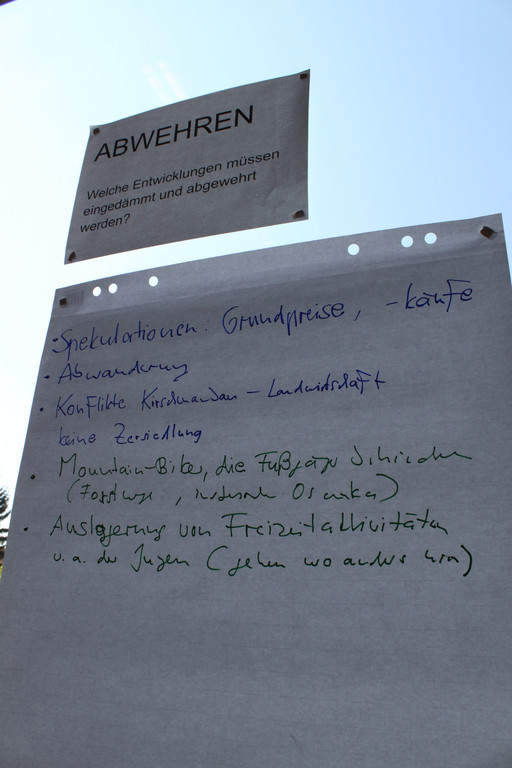 ABWEHREN
Welche Entwicklungen müssen
eingedämmt und abgewehrt
werden?
- Spekulationen: Grundpreise, -käufe
- Abwanderung
• Konflikte - Landwirtschaft
keine Zersiedlung
• Mountain-Biker, die Fußgäger
(Forstwege,
• Auslagerung von Freizeitaktivitäten
u.a. der Jugen (gehen wo anders hin)